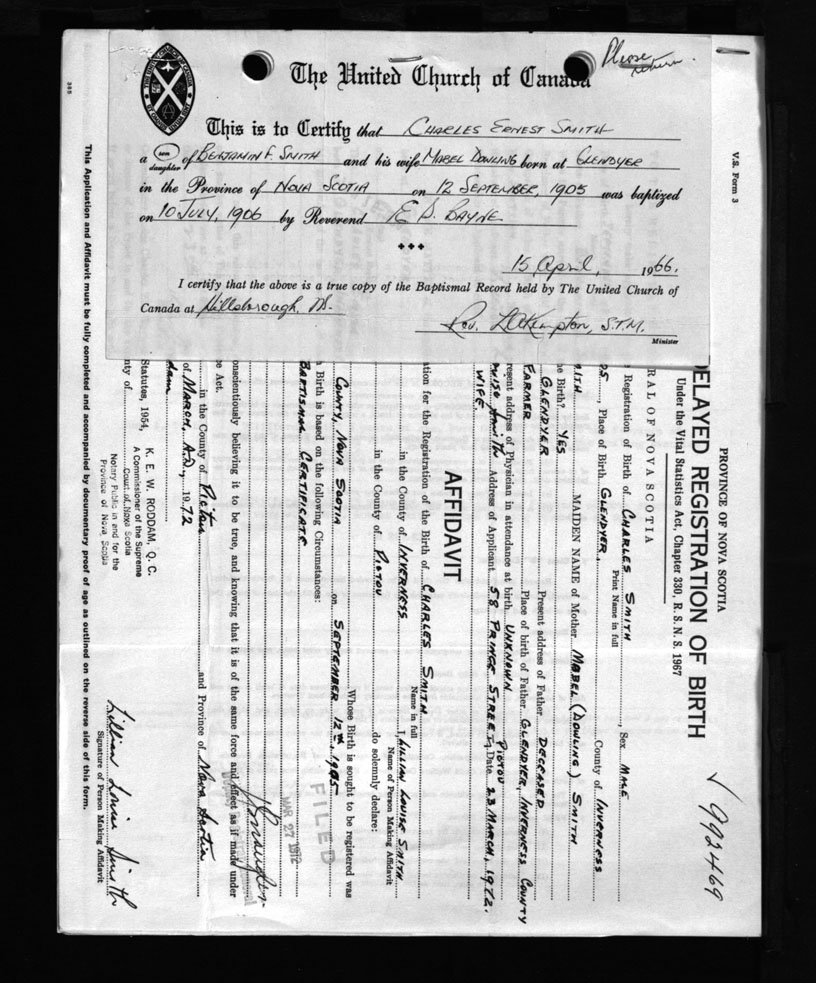 Please
return
The United Church of Canada
This is to Certify that CHARLES ERNEST SMITH
a son daughter of BENJAMIN F. SMITH and his wife MABEL DOWLING born at GLENDYER
in the Province of NOVA SCOTIA on 12 SEPTEMBER, 1905 was baptized
on 10 JULY, 1906 by Reverend E. S. BAYNE
15 April, 1966.
I certify that the above is a true copy of the Baptismal Record held by The United Church of
Canada at Hillsborough,
Rev. S.T.M.
Minister
V.S. Form 3
992469
PROVINCE OF NOVA SCOTIA
ELAYED REGISTRATION OF BIRTH
Under the Vital Statistics Act, Chapter 330, R. S. N. S. 1967
RAL OF NOVA SCOTIA
Registration of Birth of CHARLES SMITH, Sex MALE
Print Name in full
05, Place of Birth GLENDYER, County of INVERNESS
ITH MAIDEN NAME of Mother MABEL (DOWLING) SMITH
e Birth? YES
GLENDYER Present address of Father DECEASED
FARMER Place of birth of Father GLENDYER, INVERNESS COUNTY
resent address of Physician in attendance at birth UNKNOWN
Address of Applicant 58 PRINCE STREET, PICTOU Date 23 MARCH, 1972.
WIFE
AFFIDAVIT
ation for the Registration of the Birth of CHARLES SMITH
Name in full
I, LILLIAN LOUISE SMITH
Name of Person Making Affidavit
in the County of INVERNESS
in the County of PICTOU do solemnly declare:
Whose Birth is sought to be registered was
COUNTY, NOVA SCOTIA on SEPTEMBER 12th, 1905
Birth is based on the following Circumstances:
BAPTISMAL CERTIFICATE
FILED
MAR 27 1972
onscientiously believing it to be true, and knowing that it is of the same force and effect as if made under
e Act.
in the County of Pictou and Province of Nova Scotia
of MARCH, A.D., 1972
dam
K. E. W. RODDAM, Q. C.
Statutes, 1954, A Commissioner of the Supreme
nty of Court of Nova Scotia
Notary Public in and for the
Province of Nova Scotia
Lillian Louise Smith
Signature of Person Making Affidavit
This Application and Affidavit must be fully completed and accompanied by documentary proof of age as outlined on the reverse side of this form.